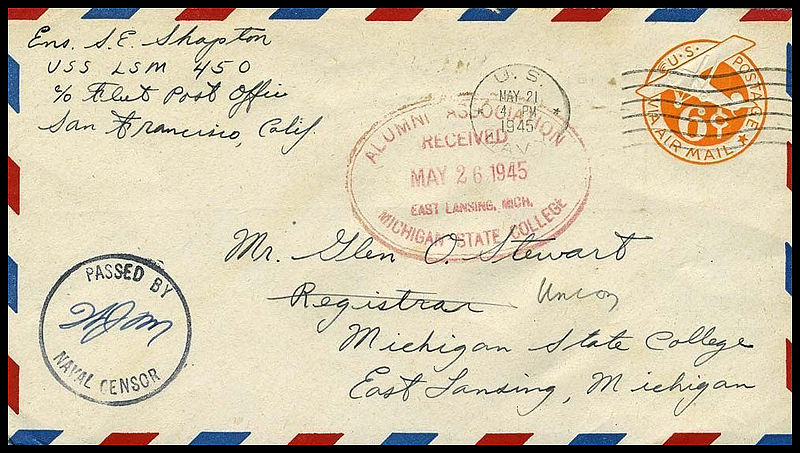 Ens. S.E. Shapton
USS LSM 450
c/o Fleet Post Office
San Francisco, Calif.
U.S.
MAY 21
4 PM
1945
NAVY
U.S. POSTAGE
6¢
VIA AIR MAIL
ALUMNI ASSOCIATION
RECEIVED
MAY 26 1945
EAST LANSING, MICH.
MICHIGAN STATE COLLEGE
Mr. Glen O. Stewart
Registrar Union
Michigan State College
East Lansing, Michigan
PASSED BY
NAVAL CENSOR